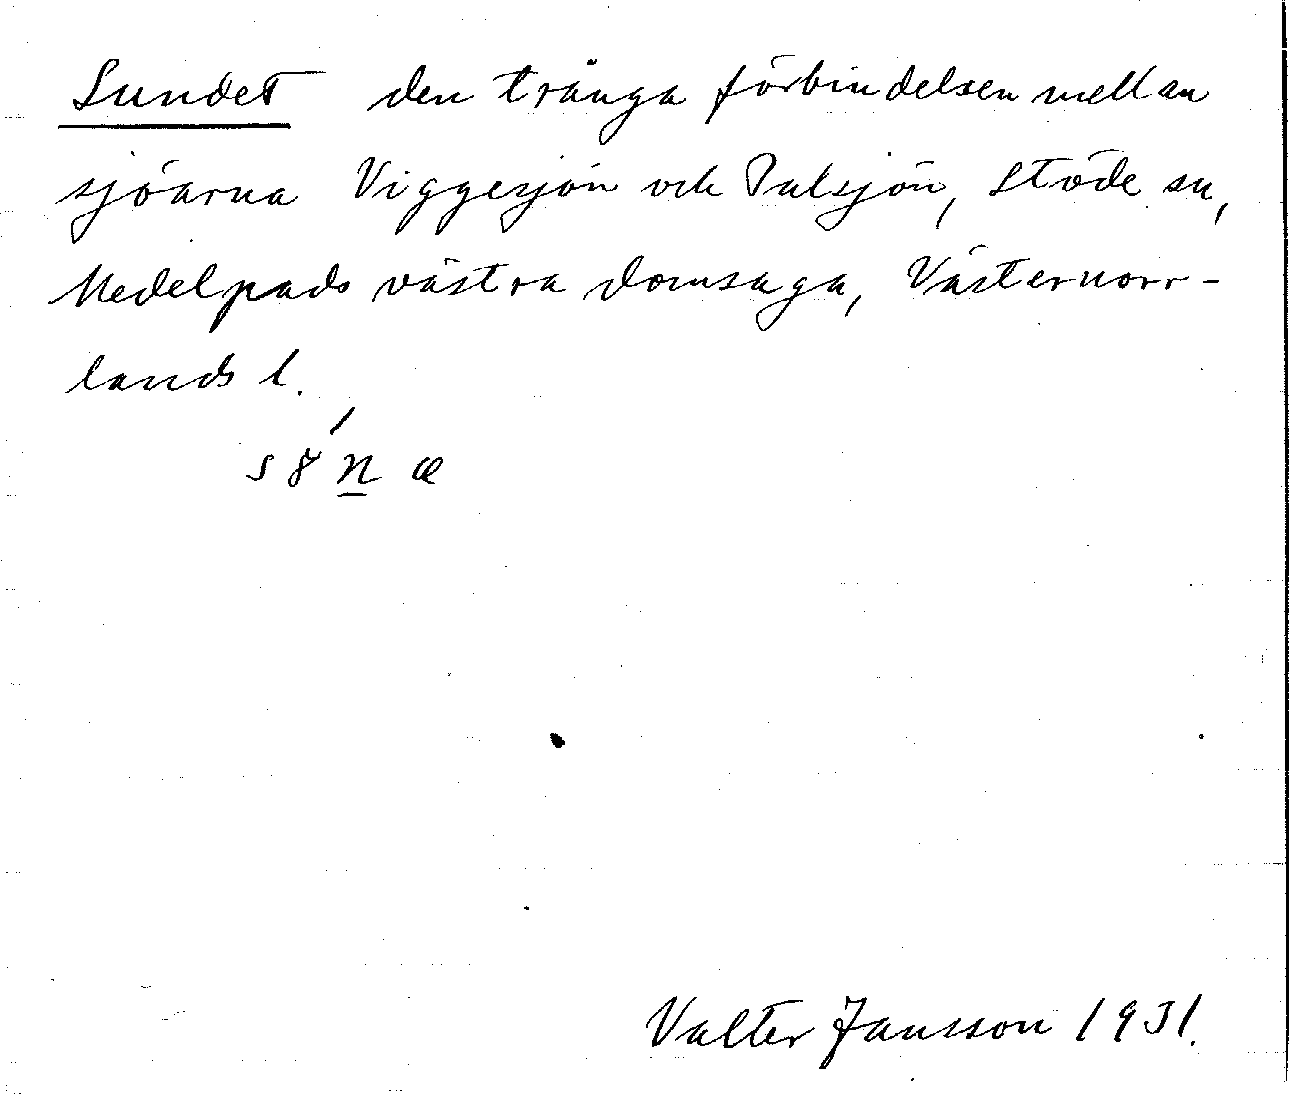 Sundet den trånga förbindelsen mellan
sjöarna Viggesjön och Pulsjön, Stöde sn,
Medelpads västra domsaga, Västernorr-
lands l.
Valter Jansson 1931.